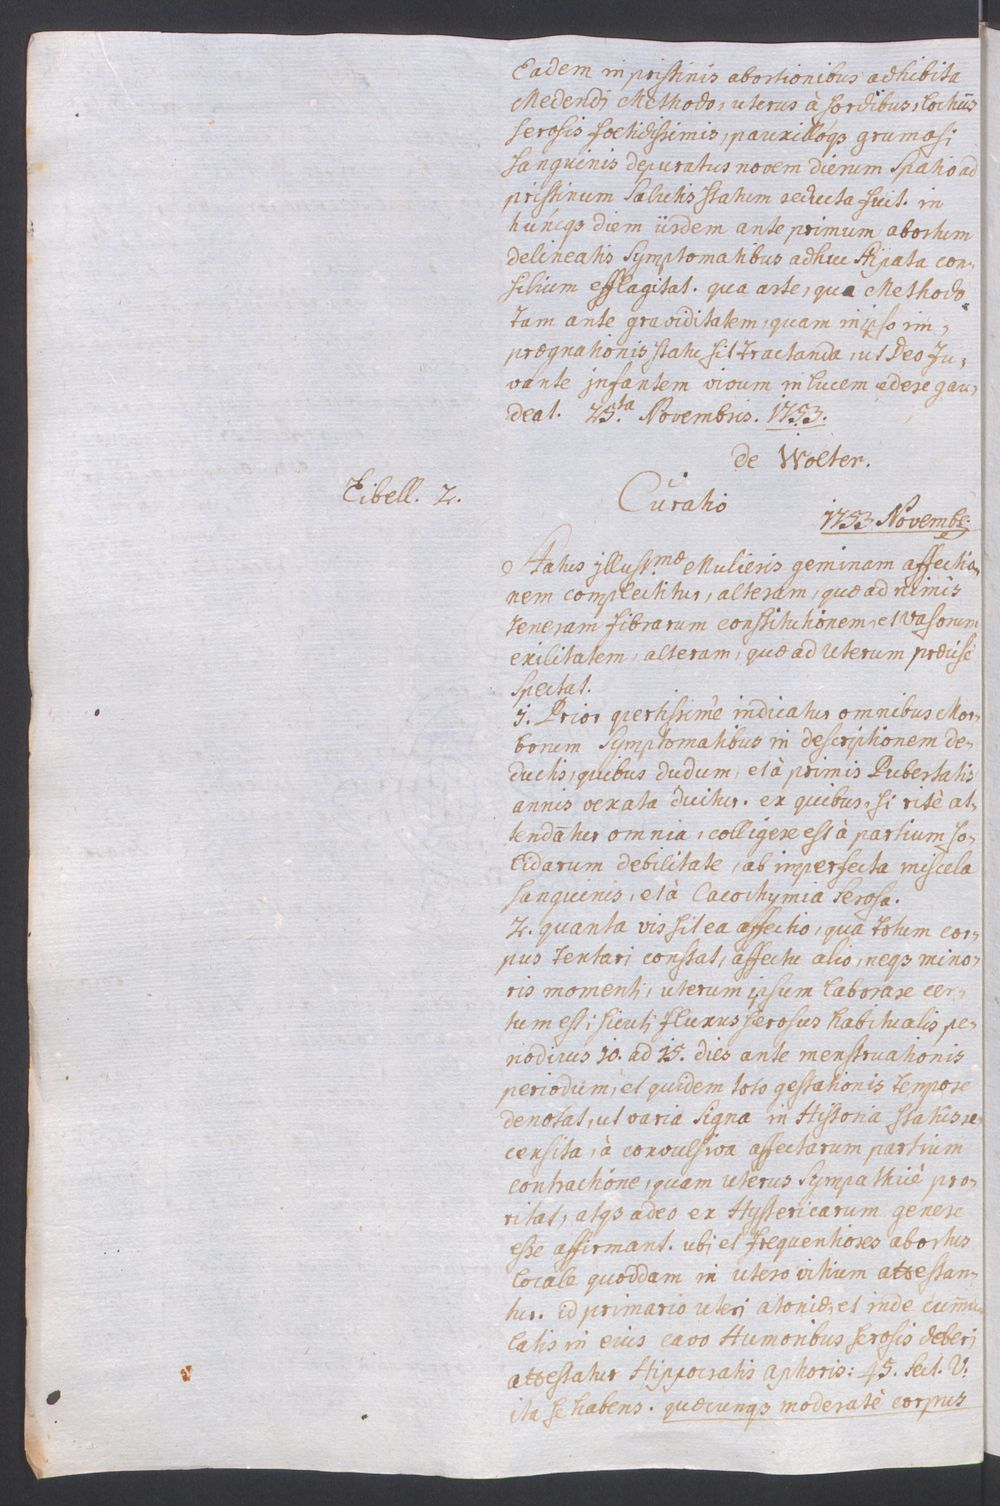 Eadem in pristinis abortionibus adhibita
Medendi Methodo, uterus à sordibus, lochiis
serosis foetidissimis, pauxilloqs grumosi
sanguinis depuratus novem dierum spatio ad
pristinum salutis statum reducta fuit. in
huncqs diem iisdem ante primum abortum
delineatis symptomatibus adhuc stipata con-
silium efflagitat. qua arte, qua Methodo
tam ante graviditatem, quam in ipso im-
prægnationis statu sit tractanda, ut Deo Ju-
vante jnfantem vivum in lucem edere gau-
deat. 25.ta Novembris. 1753.
de Wolter.
Libell. 2.
Curatio
1753 Novemb:
Status jllust.mæ Mulieris geminam affectio-
nem complectitur, alteram, quæ ad nimis
teneram fibrarum constitutionem, et vasorum
exilitatem, alteram, quæ ad uterum præcise
spectat.
1. Prior apertissimè indicatur omnibus Mor-
borum symptomatibus in descriptionem de-
ductis, quibus dudum, et à primis Pubertatis
annis vexata ducitur. ex quibus, si ritè at-
tendantur omnia, colligere est à partium so-
lidarum debilitate, ab imperfecta miscela
sanguinis, et à Cacochymia serosa.
2. quanta vis sit ea affectio, qua totum cor-
pus tentari constat, affectu alio, neqs mino-
ris momenti, uterum ipsum laborare cer-
tum est; sicuti fluxus serosus habitualis pe-
riodicus 10. ad 15. dies ante menstruationis
periodum, et quidem toto gestationis tempore
denotat, ut varia signa in Historia statûs re-
censita, à convulsiva affectarum partium
contractione, quam uterus sympathicè pro-
ritat, atqs adeo ex Hystericarum genere
esse affirmant. ubi et frequentiores abortus
locale quoddam in utero vitium attestan-
tur. id primario uteri atoniæ, et inde cumu-
latis in eius cavo Humoribus serosis deberi
attestatur Hippocratis aphoris: 45. sect. V.
ita se habens. quæcunqs moderatè corpus